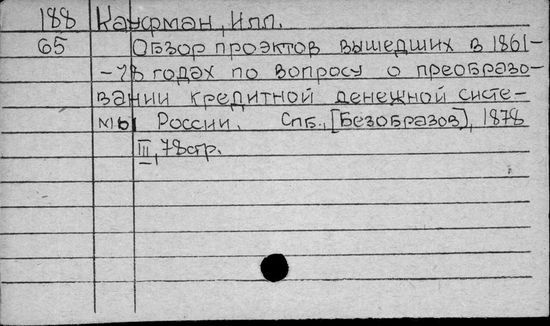 188 Кауфман, Илл.
65 Обзор проэктов вышедших в 1861-
-78 годах по вопросу о преобразо-
вании кредитной денежной систе-
мы России. Спб., [Безобразов], 1878
III, 78стр.